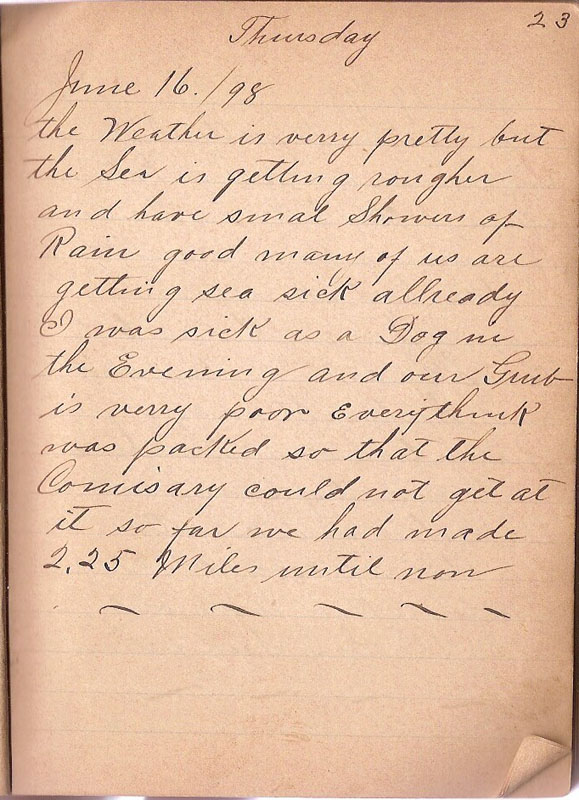 23
Thursday
June 16./98
the Weather is verry pretty but
the Sea is getting rougher
and have smal Showers of
Rain good many of us are
getting sea sick allready
I was sick as a Dog in
the Evening and our Grub
is verry poor Everythink
was packed so that the
Comisary could not get at
it so far we had made
2.25 Miles until now